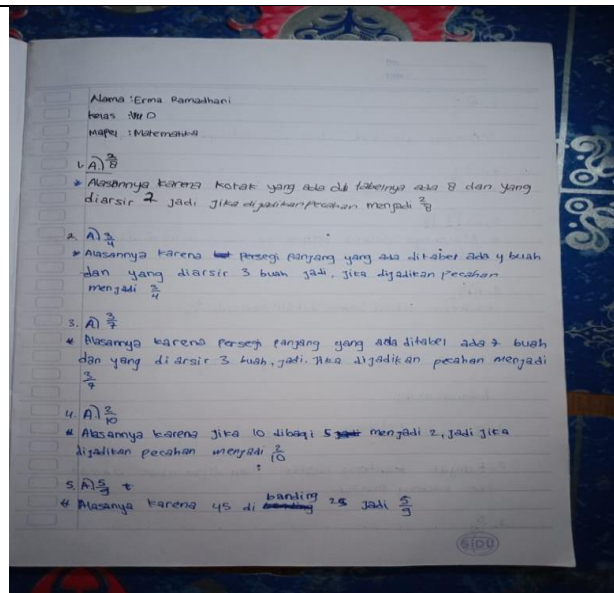 Nama : Erma Ramadhani
kelas : VII D
Mapel : Matematika
1. A.) 2/8
* Alasannya karena kotak yang ada di tabelnya ada 8 dan yang
diarsir 2 jadi jika dijadikan pecahan menjadi 2/8
2. A) 3/4
* Alasannya karena persegi panjang yang ada ditabel ada 4 buah
dan yang diarsir 3 buah jadi, jika dijadikan pecahan
menjadi 3/4
3. A) 3/7
* Alasannya karena persegi panjang yang ada ditabel ada 7 buah
dan yang di arsir 3 buah, jadi. Jika dijadikan pecahan menjadi
3/7
4. A.) 2/10
* Alasannya karena jika 10 dibagi 5 menjadi 2, jadi jika
dijadikan pecahan menjadi 2/10
5. A.) 5/9
* Alasanya karena 45 di banding 25 jadi 5/9
SIDU